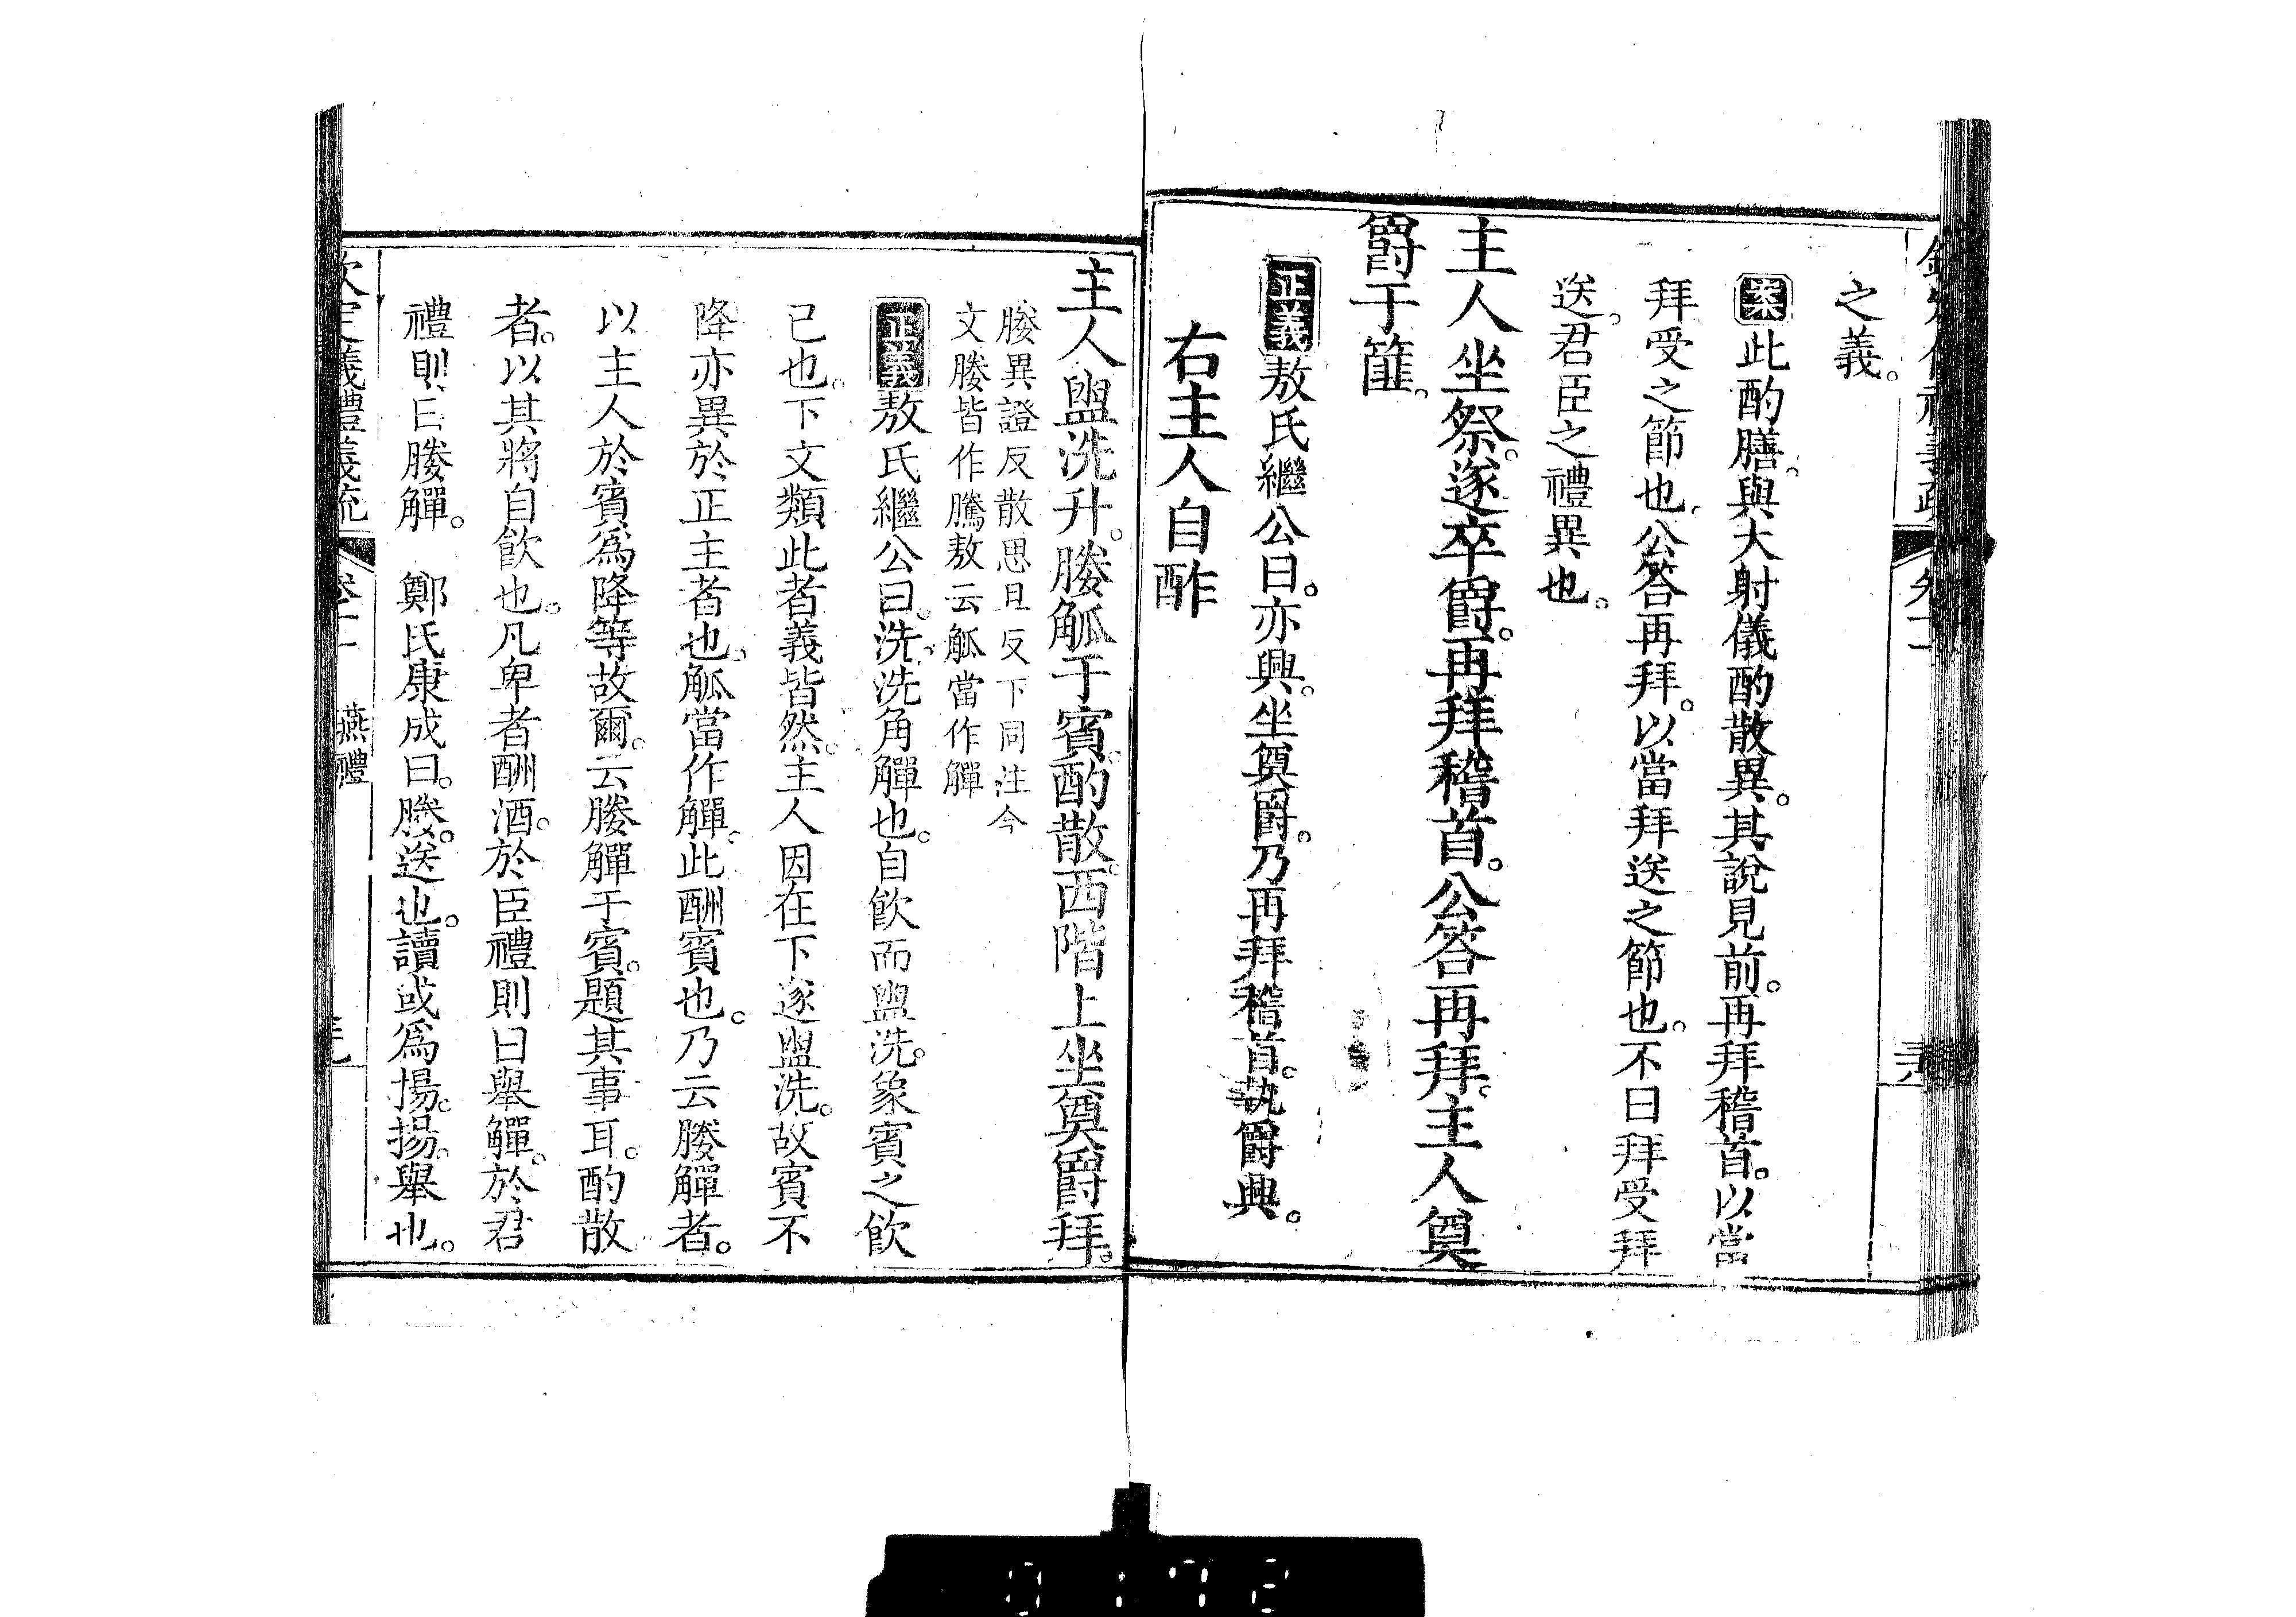 之義。
案此酌膳。與大射儀酌散異。其說見前。再拜稽首。以當
拜受之節也。公答再拜。以當拜送之節也。不曰拜受拜
送。君臣之禮異也。
主人坐祭。遂卒爵。再拜稽首。公答再拜。主人奠
爵于篚。
正義敖氏繼公曰。亦興。坐奠爵。乃再拜稽首。執爵興。
右主人自酢
主人盥洗升。媵觚于賓。酌散。西階上坐奠爵拜。
媵異證反散思旦反下同注今
文媵皆作騰敖云觚當作觶
正義敖氏繼公曰。洗。洗角觶也。自飲而盥洗。象賓之飲
已也。下文類此者義皆然。主人因在下遂盥洗。故賓不
降亦異於正主者也。觚當作觶。此酬賓也。乃云媵觶者。
以主人於賓爲降等故爾。云媵觶于賓。題其事耳。酌散
者。以其將自飲也。凡卑者酬酒。於臣禮則曰舉觶。於君
禮則曰媵觶。 鄭氏康成曰。媵。送也。讀或爲揚。揚。舉也。
欽定義禮義疏 卷十一 燕禮